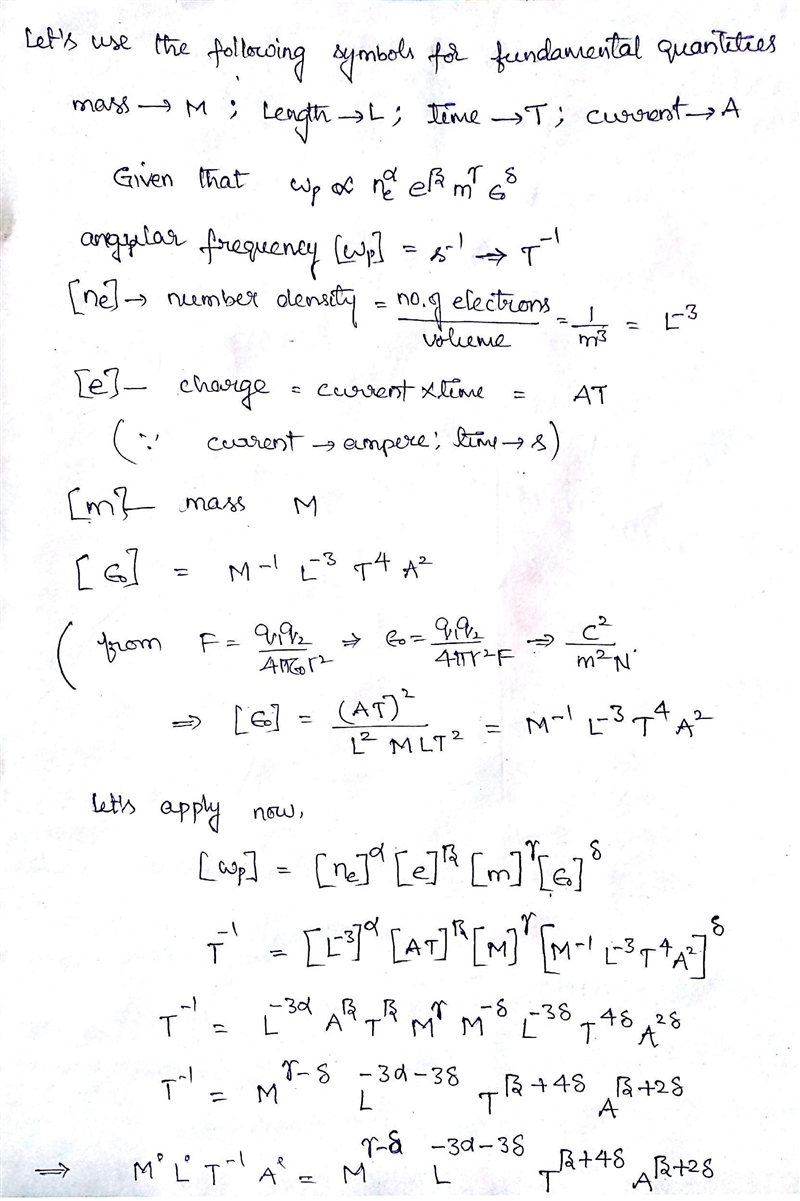 Let's use the following symbols for fundamental quantities
mass → M ; Length → L ; time → T ; current → A
Given that ωp ∝ ne^α e^β m^γ ϵ0^δ
angular frequency [ωp] = s^-1 ⇒ T^-1
[ne] → number density = no. of electrons / volume = 1/m^3 = L^-3
[e] – charge = current × time = AT
(∵ current → ampere; time → s)
[m] – mass M
[ϵ0] = M^-1 L^-3 T^4 A^2
( from F = q1q2 / 4πϵ0r^2 ⇒ ϵ0 = q1q2 / 4πr^2F ⇒ C^2 / m^2 N.
⇒ [ϵ0] = (AT)^2 / L^2 MLT^2 = M^-1 L^-3 T^4 A^2
Let's apply now,
[ωp] = [ne]^α [e]^β [m]^γ [ϵ0]^δ
T^-1 = [L^-3]^α [AT]^β [M]^γ [M^-1 L^-3 T^4 A^2]^δ
T^-1 = L^-3α A^β T^β M^γ M^-δ L^-3δ T^4δ A^2δ
T^-1 = M^γ-δ L^-3α-3δ T^β+4δ A^β+2δ
⇒ M^0 L^0 T^-1 A^0 = M^γ-δ L^-3α-3δ T^β+4δ A^β+2δ